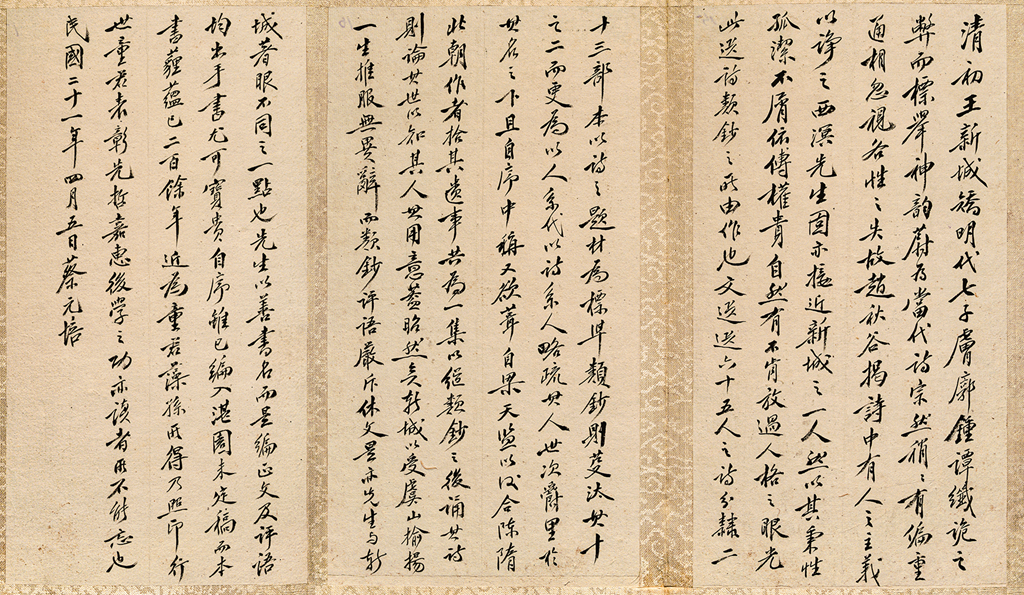 清初王新城矯明代七子膚廓鍾譚纖詭之
弊而標舉神韵蔚為當代詩宗然稍稍有偏重
通相忽視各性之失故趙秋谷揭詩中有人之主義
以諍之西溟先生固亦接近新城之一人然以其秉性
孤潔不屑依傅權貴自然有不肯放過人格之眼光
此選詩類鈔之所由作也文選選六十五人之詩分隸二
十三部本以詩之題材為標準類鈔則蔓汰其十
之二而更為以人系代以詩系人略疏其人世次爵里於
其名之下且自序中稱又欲葺自梁天監以後合陳隋
北朝作者拾其遺事共為一集以繼類鈔之後誦其詩
則論其世以知其人其用意蓋昭然矣新城以受虞山揄揚
一生推服無異辭而類鈔評語嚴斥休文是亦先生與新
城著眼不同之一點也先生以善書名而是編正文及評語
均出手書尤可寶貴自序雖已編入湛園未定稿而本
書蘊蘊已二百餘年近為重君藻孫所得乃照印行
世重君表彰先哲嘉惠後學之功亦讀者所不能忘也
民國二十一年四月五日蔡元培